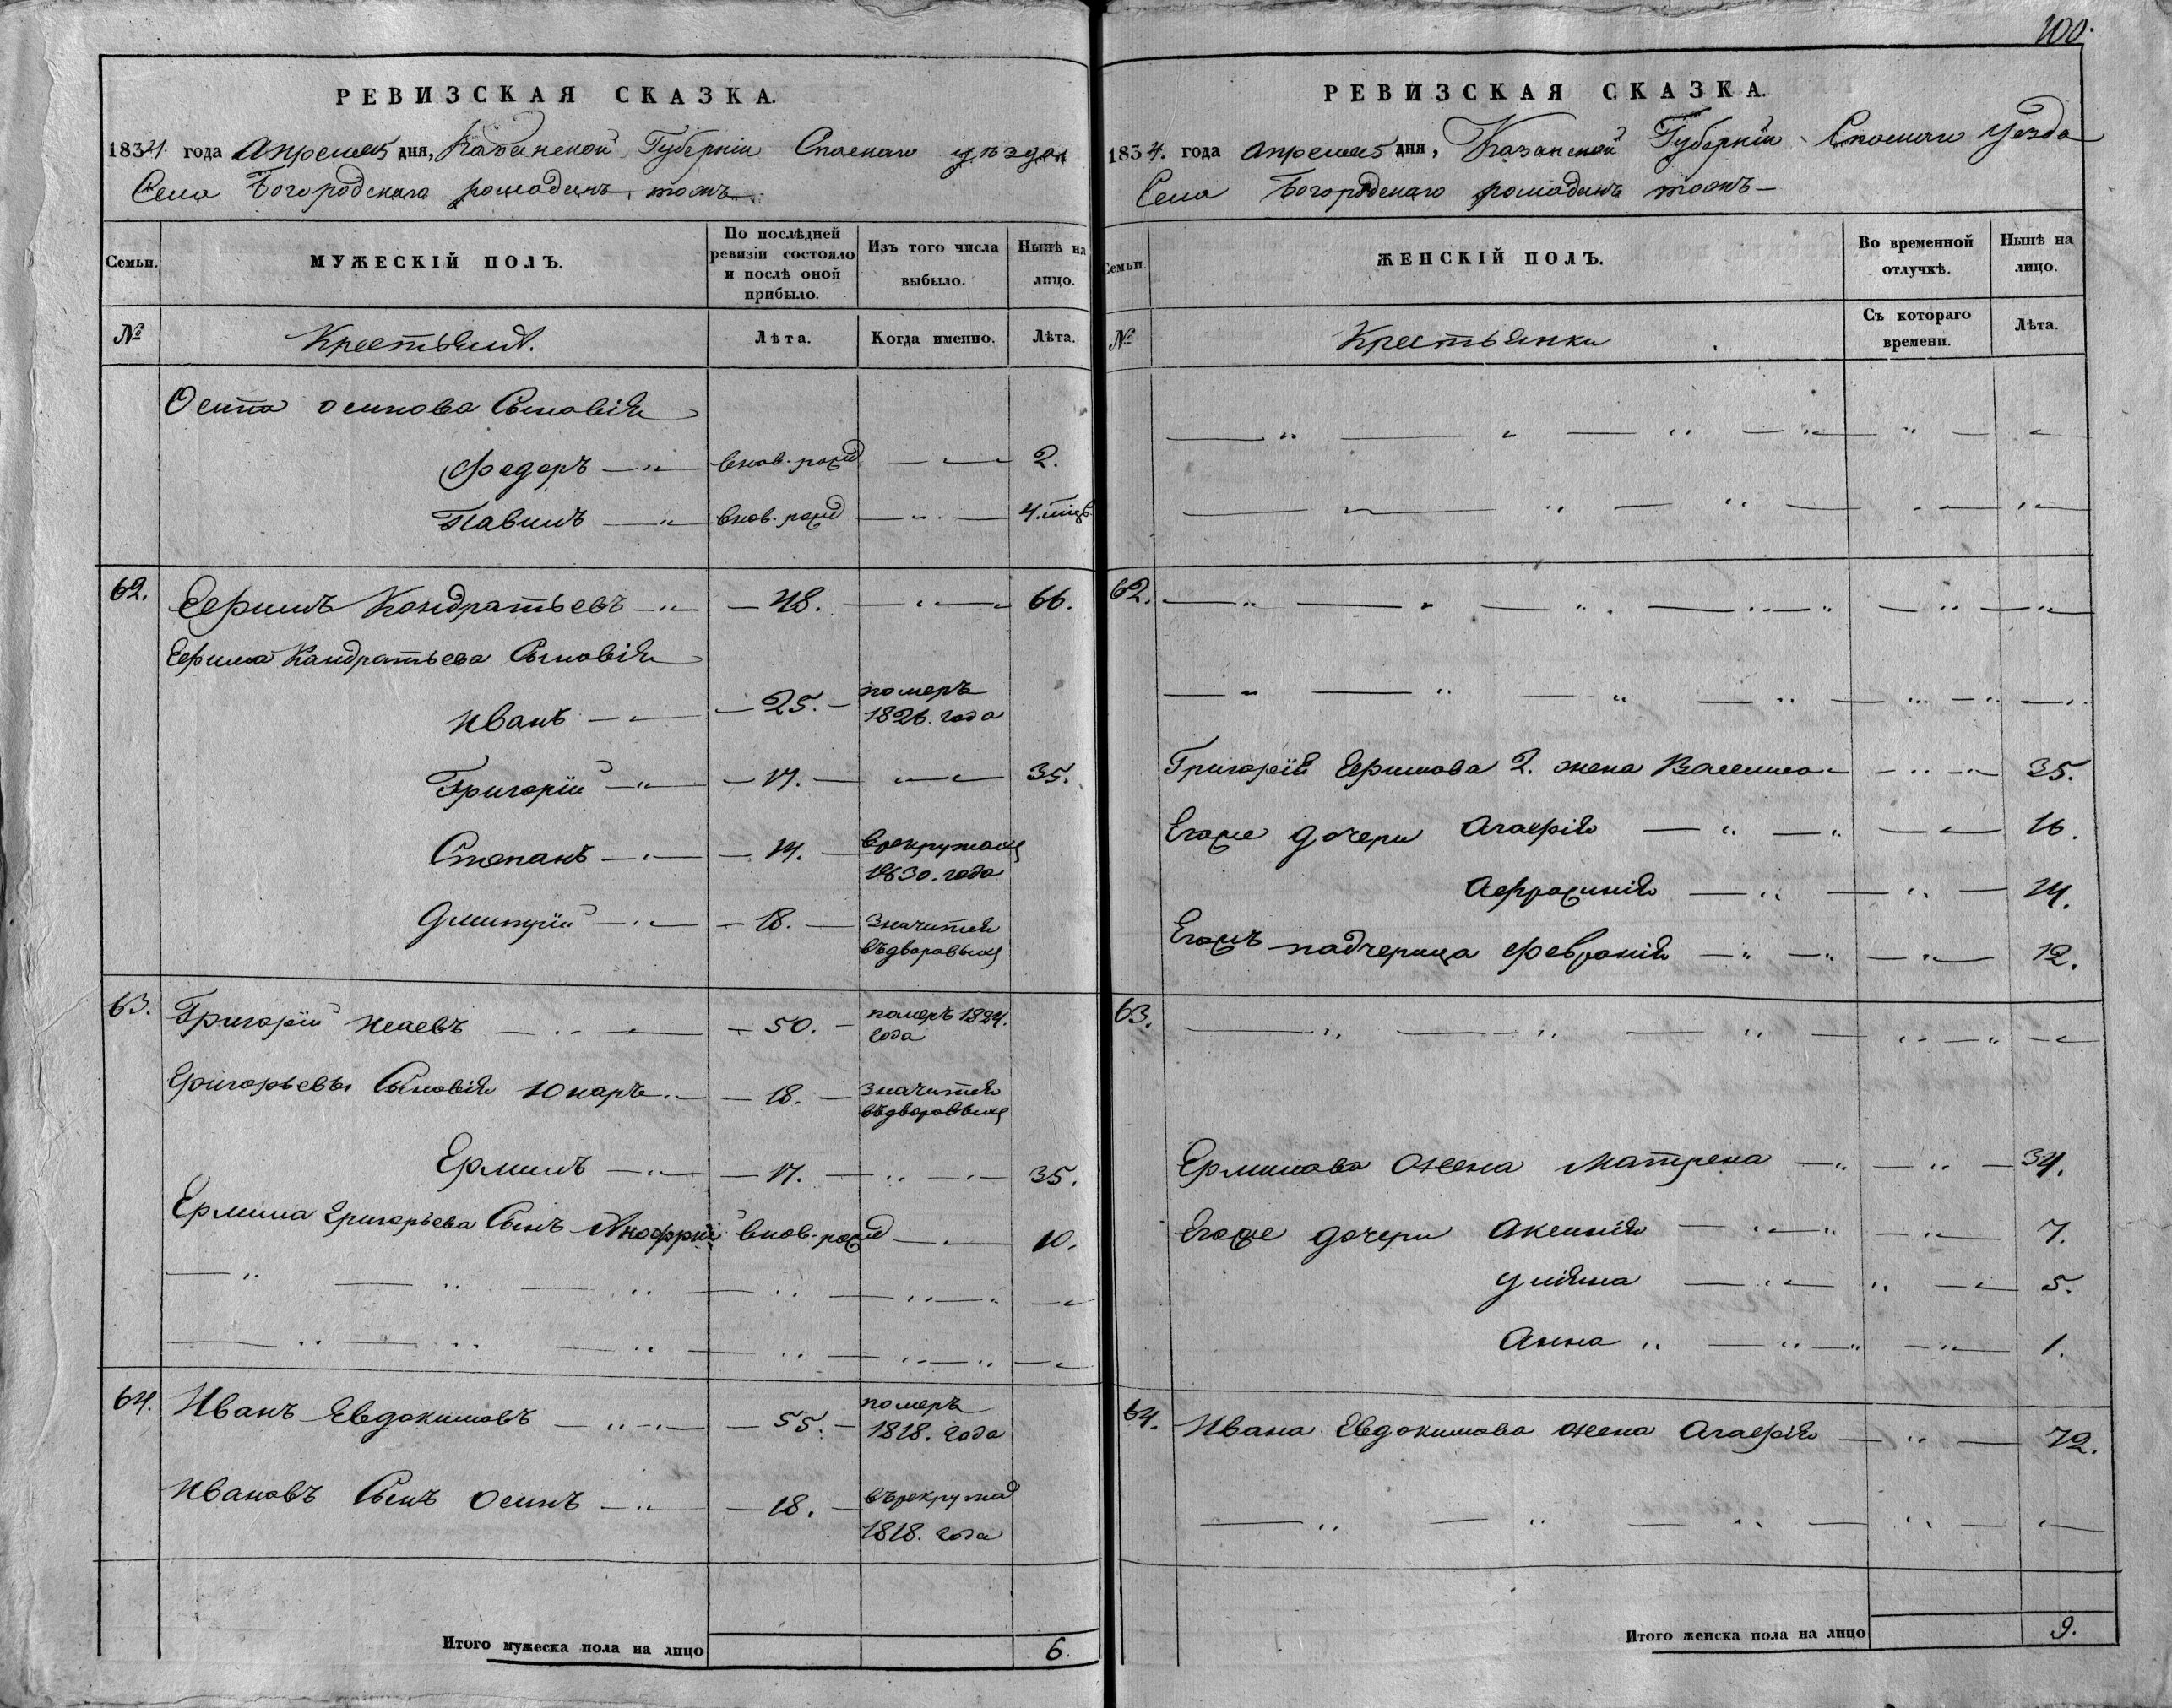 РЕВИЗСКАЯ СКАЗКА.
1834. года Апреля 5 дня, Казанской Губернiи Спаскаго уѣзда
Села Богородскаго ромодань тожъ
Семьи. МУЖЕСКIЙ ПОЛЪ. По послѣдней ревизiи состояло и послѣ оной прибыло. Изъ того числа выбыло. Нынѣ на лицо.
№ Крестьяне. Лѣта. Когда именно. Лѣта.
Осипа осипова Сыновiя
Федоръ — „ — внов. рожд — „ — 2.
Павилъ — „ внов. рожд — „ — 4. мцъ
62. Ефимъ Кондратьевъ — „ — 48. — „ — „ 66.
Ефима Кандратьева Сыновiя
Иванъ — „ — 25. — померъ 1826. года
Григорiй — „ — 17. — „ — „ — 35.
Степанъ — „ — 14. — врекрутах 1830. года
Дмитрiй — „ — 18. — значится въдворовых
63. Григорiй Исаевъ — „ — 50. — померъ 1824. года
Григорьевы Сыновiя Юнаръ „ — 18. — значится въдворовых
Ермилъ — „ — 17. — „ — „ — 35.
Ермила Григорьева Сынъ Анофрiй внов. рожд — „ — 10.
64. Иванъ Евдокимовъ — „ — „ — 55. — померъ 1818. года
Ивановъ Сынъ Осипъ — „ — 18. — върекрутах 1818. года
Итого мужеска пола на лицо 6.
100.
РЕВИЗСКАЯ СКАЗКА.
1834. года апреля 5 дня, Казанской Губернiи Спаскаго Уезда
Села Богородскаго ромодань тожъ —
Семьи. ЖЕНСКIЙ ПОЛЪ. Во временной отлучкѣ. Нынѣ на лицо.
№ Крестьянки Съ котораго времени. Лѣта.
62. — „ — „ — „ — „
Григорiя Ефимова 2. жена Василиса — „ — „ 35.
Егоже дочери Агафiя — „ — „ — 16.
Афросинiя — „ — „ — 14.
Егожъ падчерица Февронiя — „ — „ — „ — 12.
63. — „ — „ — „ — „
Ермилова Жена Матрена — „ — „ — 34.
Егоже дочери Аксинiя — „ — „ — „ — 7.
Улiяна — „ — „ — 5.
Анна „ — „ — „ — „ — 1.
64. Ивана Евдокимова жена Агафiя — „ — 72.
Итого женска пола на лицо 9.